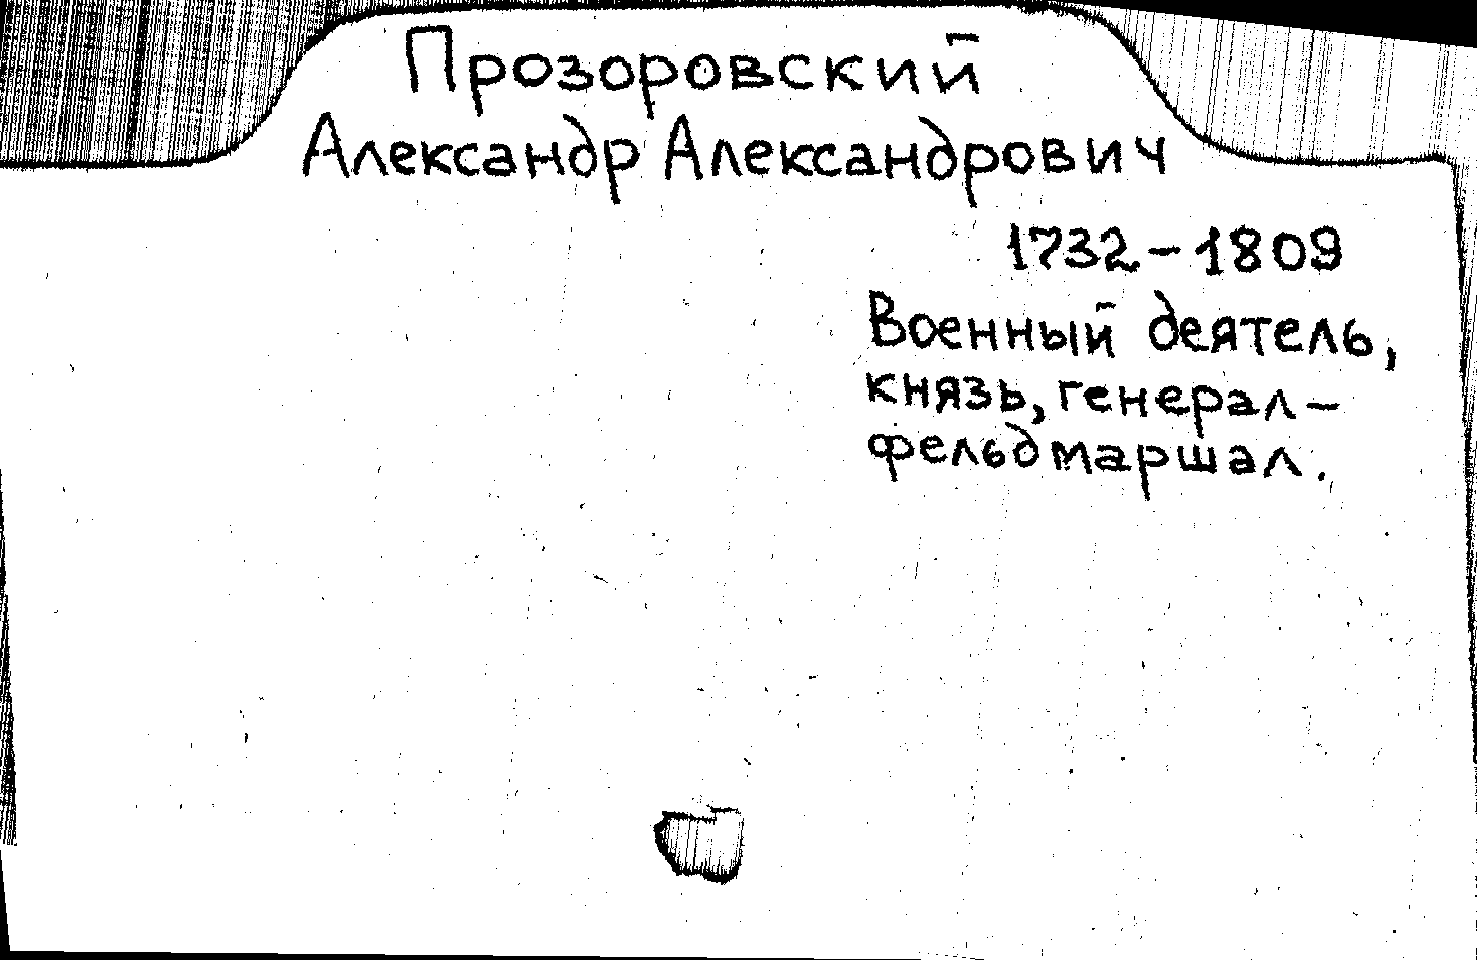 Прозоровский
Александр Александрович
1732-1809
Военный деятель,
князь, генерал-
фельдмаршал.